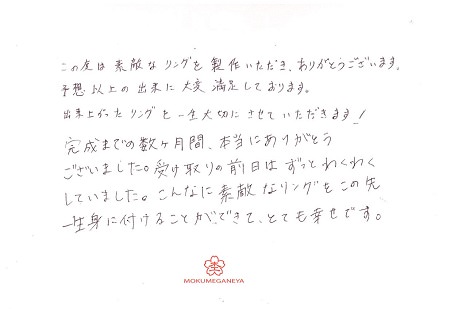 この度は素敵なリングを製作いただき、ありがとうございます。
予想以上の出来に大変満足しております。
出来上がったリングを一生大切にさせていただきます！
完成までの数ヶ月間、本当にありがとう
ございました。受け取りの前日はずっとわくわく
していました。こんなに素敵なリングをこの先
一生身に付けることができて、とても幸せです。
MOKUMEGANEYA